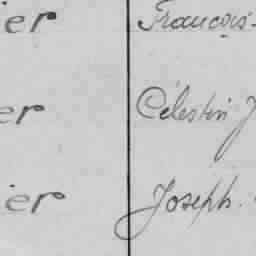 ier François-
er Célestin J
ier Joseph.